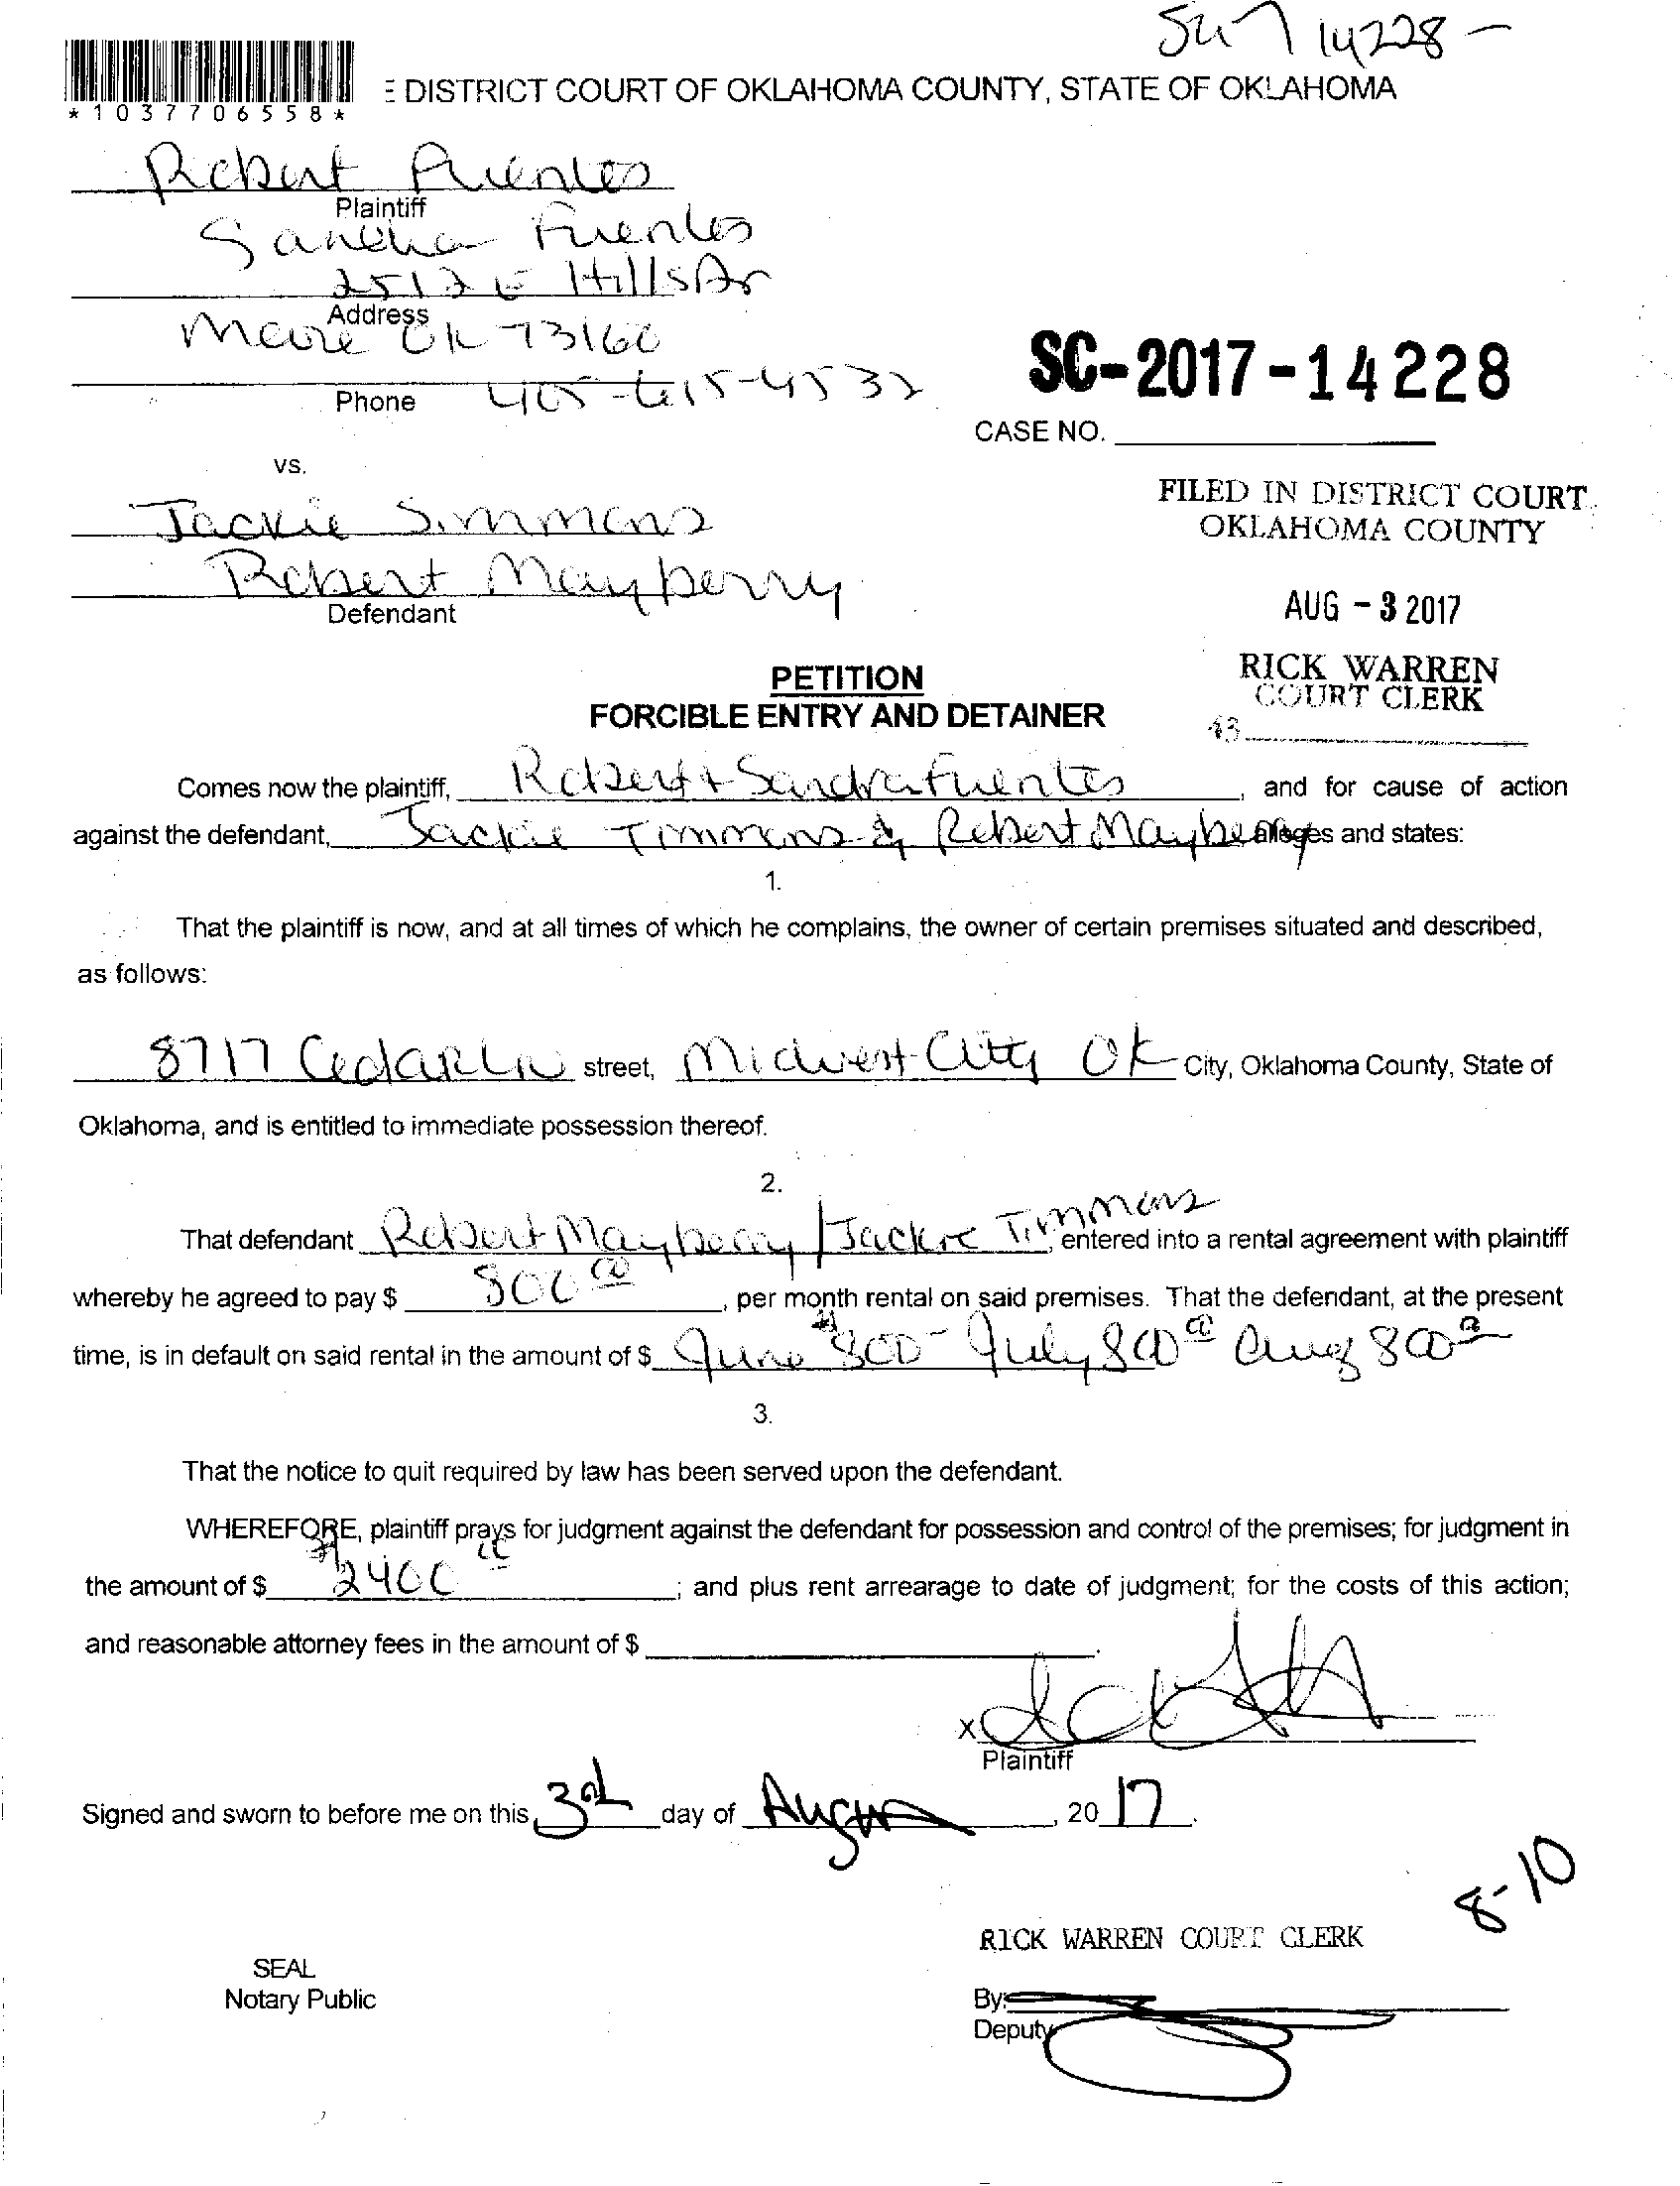 14228-
*1037706558*
E DISTRICT COURT OF OKLAHOMA COUNTY, STATE OF OKLAHOMA
Robert Fuentes
Plaintiff
Sandra Fuentes
2512 E Hills Dr
Address
Moore OK 73160
Phone 405-615-4532
SC-2017-14228
CASE NO.
vs.
Jackie Simmons
Robert Mayberry
Defendant
FILED IN DISTRICT COURT
OKLAHOMA COUNTY
AUG - 3 2017
RICK WARREN
COURT CLERK
43
PETITION
FORCIBLE ENTRY AND DETAINER
Comes now the plaintiff, Robert & Sandra Fuentes, and for cause of action
against the defendant, Jackie Timmons & Robert Mayberry alleges and states:
1.
That the plaintiff is now, and at all times of which he complains, the owner of certain premises situated and described,
as follows:
8717 Cedar Ln street, Midwest City OK City, Oklahoma County, State of
Oklahoma, and is entitled to immediate possession thereof.
2.
That defendant Robert Mayberry / Jackie Timmons, entered into a rental agreement with plaintiff
whereby he agreed to pay $ 800 00, per month rental on said premises. That the defendant, at the present
time, is in default on said rental in the amount of $ June $800- July 800 00 Aug 800 00
3.
That the notice to quit required by law has been served upon the defendant.
WHEREFORE, plaintiff prays for judgment against the defendant for possession and control of the premises; for judgment in
the amount of $ $2400 00; and plus rent arrearage to date of judgment; for the costs of this action;
and reasonable attorney fees in the amount of $ .
x
Plaintiff
Signed and sworn to before me on this 3rd day of August, 2017.
8-10
RICK WARREN COURT CLERK
SEAL
Notary Public
By:
Deputy